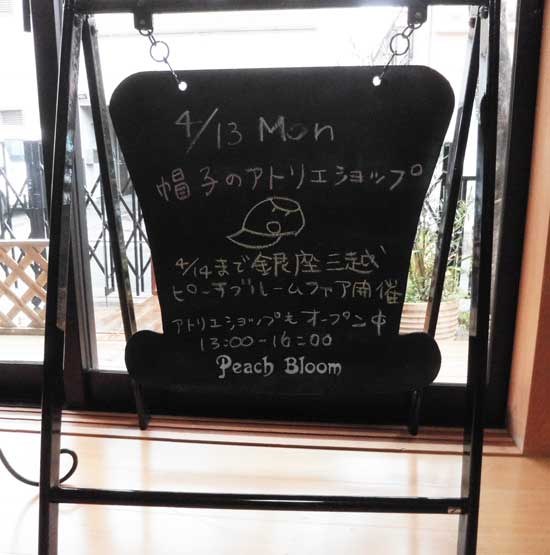 4/13 Mon
帽子のアトリエショップ
4/14まで銀座三越
ピーチブルームフェア開催
アトリエショップもオープン中
13:00-16:00
Peach Bloom